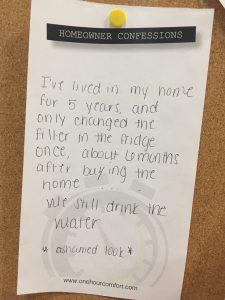 HOMEOWNER CONFESSIONS
I've lived in my home
for 5 years, and
only changed the
filter in the fridge
once, about 6 months
after buying the
home
We still drink the
water
* ashamed look *
www.onehourcomfort.com